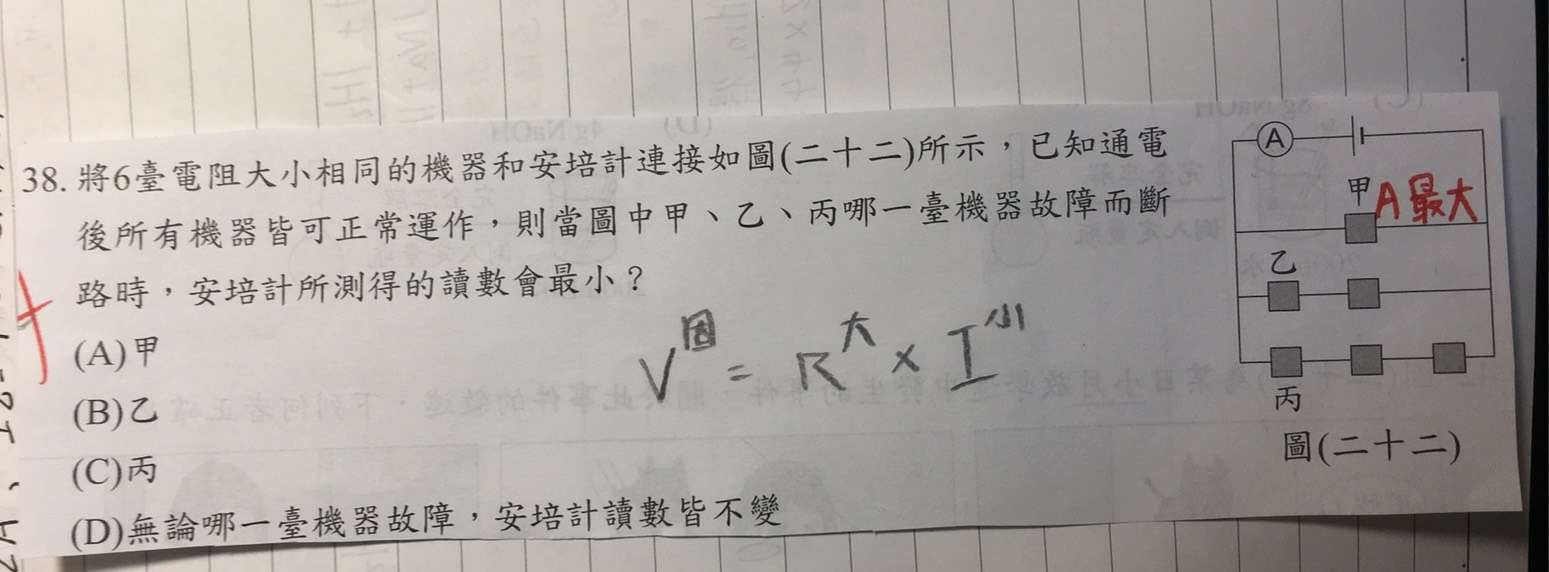 38. 將6臺電阻大小相同的機器和安培計連接如圖(二十二)所示，已知通電
後所有機器皆可正常運作，則當圖中甲、乙、丙哪一臺機器故障而斷
路時，安培計所測得的讀數會最小？
(A)甲
(B)乙
(C)丙
(D)無論哪一臺機器故障，安培計讀數皆不變
V固 = R大 × I小
A
甲 A最大
乙
丙
圖(二十二)